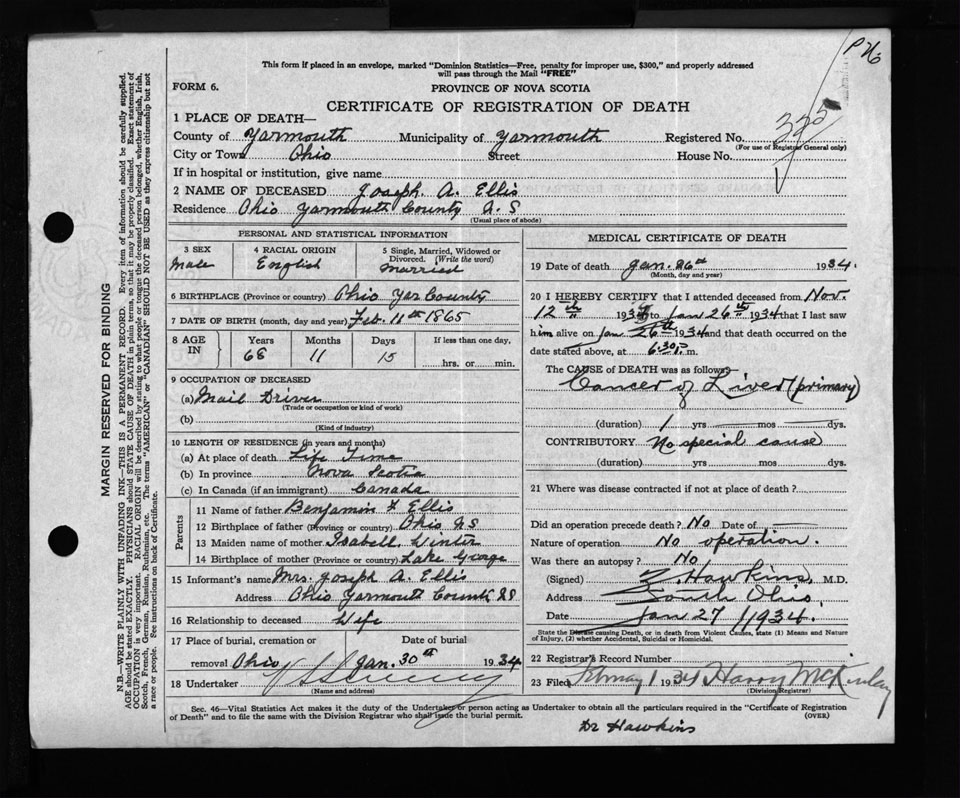 P 26
This form if placed in an envelope, marked "Dominion Statistics—Free, penalty for improper use, $300," and properly addressed
will pass through the Mail "FREE"
FORM 6.
PROVINCE OF NOVA SCOTIA
CERTIFICATE OF REGISTRATION OF DEATH
1 PLACE OF DEATH—
County of Yarmouth Municipality of Yarmouth Registered No. 325
(For use of Registrar General only)
City or Town Ohio Street House No.
If in hospital or institution, give name
2 NAME OF DECEASED Joseph. A. Ellis
Residence Ohio Yarmouth County N.S
(Usual place of abode)
PERSONAL AND STATISTICAL INFORMATION
3 SEX Male
4 RACIAL ORIGIN English
5 Single, Married, Widowed or Divorced. (Write the word) Married
6 BIRTHPLACE (Province or country) Ohio Yar County
7 DATE OF BIRTH (month, day and year) Feb. 11th 1865
8 AGE IN Years Months Days If less than one day,
68 11 15 hrs. or min.
9 OCCUPATION OF DECEASED
(a) Mail Driver
(Trade or occupation or kind of work)
(b)
(Kind of industry)
10 LENGTH OF RESIDENCE (in years and months)
(a) At place of death Life Time
(b) In province Nova Scotia
(c) In Canada (if an immigrant) Canada
Parents
11 Name of father Benjamin F Ellis
12 Birthplace of father (Province or country) Ohio N S
13 Maiden name of mother Isabell. Winter
14 Birthplace of mother (Province or country) Lake George
15 Informant's name Mrs. Joseph A. Ellis
Address Ohio Yarmouth County NS
16 Relationship to deceased Wife
17 Place of burial, cremation or Date of burial
removal Ohio Jan. 30th 1934
18 Undertaker
(Name and address)
MEDICAL CERTIFICATE OF DEATH
19 Date of death Jan. 26th 1934.
(Month, day and year)
20 I HEREBY CERTIFY that I attended deceased from Nov.
12th 193 to Jan 26th 1934 that I last saw
him alive on Jan 26th 1934 and that death occurred on
date stated above, at 6.30 p. m.
The CAUSE of DEATH was as follows—
Cancer of Liver (primary)
(duration) 1 yrs mos dys.
CONTRIBUTORY No special cause
(duration) yrs mos dys.
21 Where was disease contracted if not at place of death?
Did an operation precede death? No Date of —
Nature of operation No operation.
Was there an autopsy? No
(Signed) Z. Hawkins, M.D.
Address South Ohio,
Date Jan 27 / 1934.
State the Disease causing Death, or in death from Violent Causes, state (1) Means and Nature
of Injury, (2) whether Accidental, Suicidal or Homicidal.
22 Registrar's Record Number
23 Filed February 1 1934 Harry McKinlay
(Division Registrar)
Sec. 46—Vital Statistics Act makes it duty of the Undertaker or person acting as Undertaker to obtain all the particulars required in the "Certificate of Registration
of Death" and to file the same with the Division Registrar who shall issue the burial permit.
(OVER)
Dr Hawkins
MARGIN RESERVED FOR BINDING
N.B.—WRITE PLAINLY WITH UNFADING INK—THIS IS A PERMANENT RECORD. Every item of information should be carefully supplied.
AGE should be stated EXACTLY. PHYSICIANS should STATE CAUSE OF DEATH in plain terms, so that it may be properly classified. Exact statement of
OCCUPATION is very important. RACIAL ORIGIN will be described by stating to what people or tongue the deceased person belonged, whether English, Irish,
Scotch, French, German, Russian, Ruthenian, etc. The terms "AMERICAN" or "CANADIAN" SHOULD NOT BE USED as they express citizenship but not
a race or people. See instructions on back of Certificate.